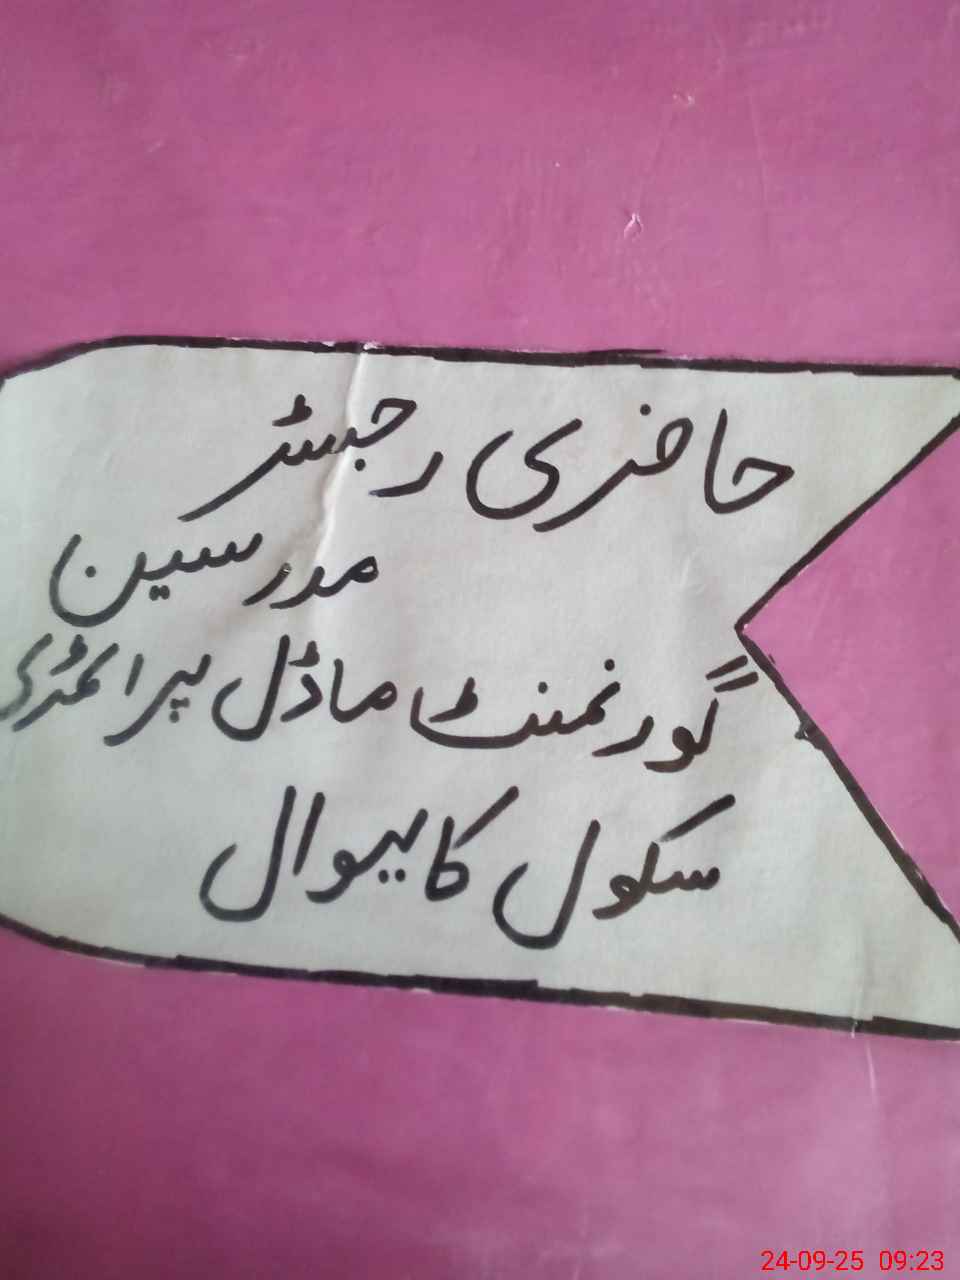 حاضری رجسٹر
مدرسین
گورنمنٹ ماڈل پرائمڑی
سکول کالیوال
24-09-25 09:23